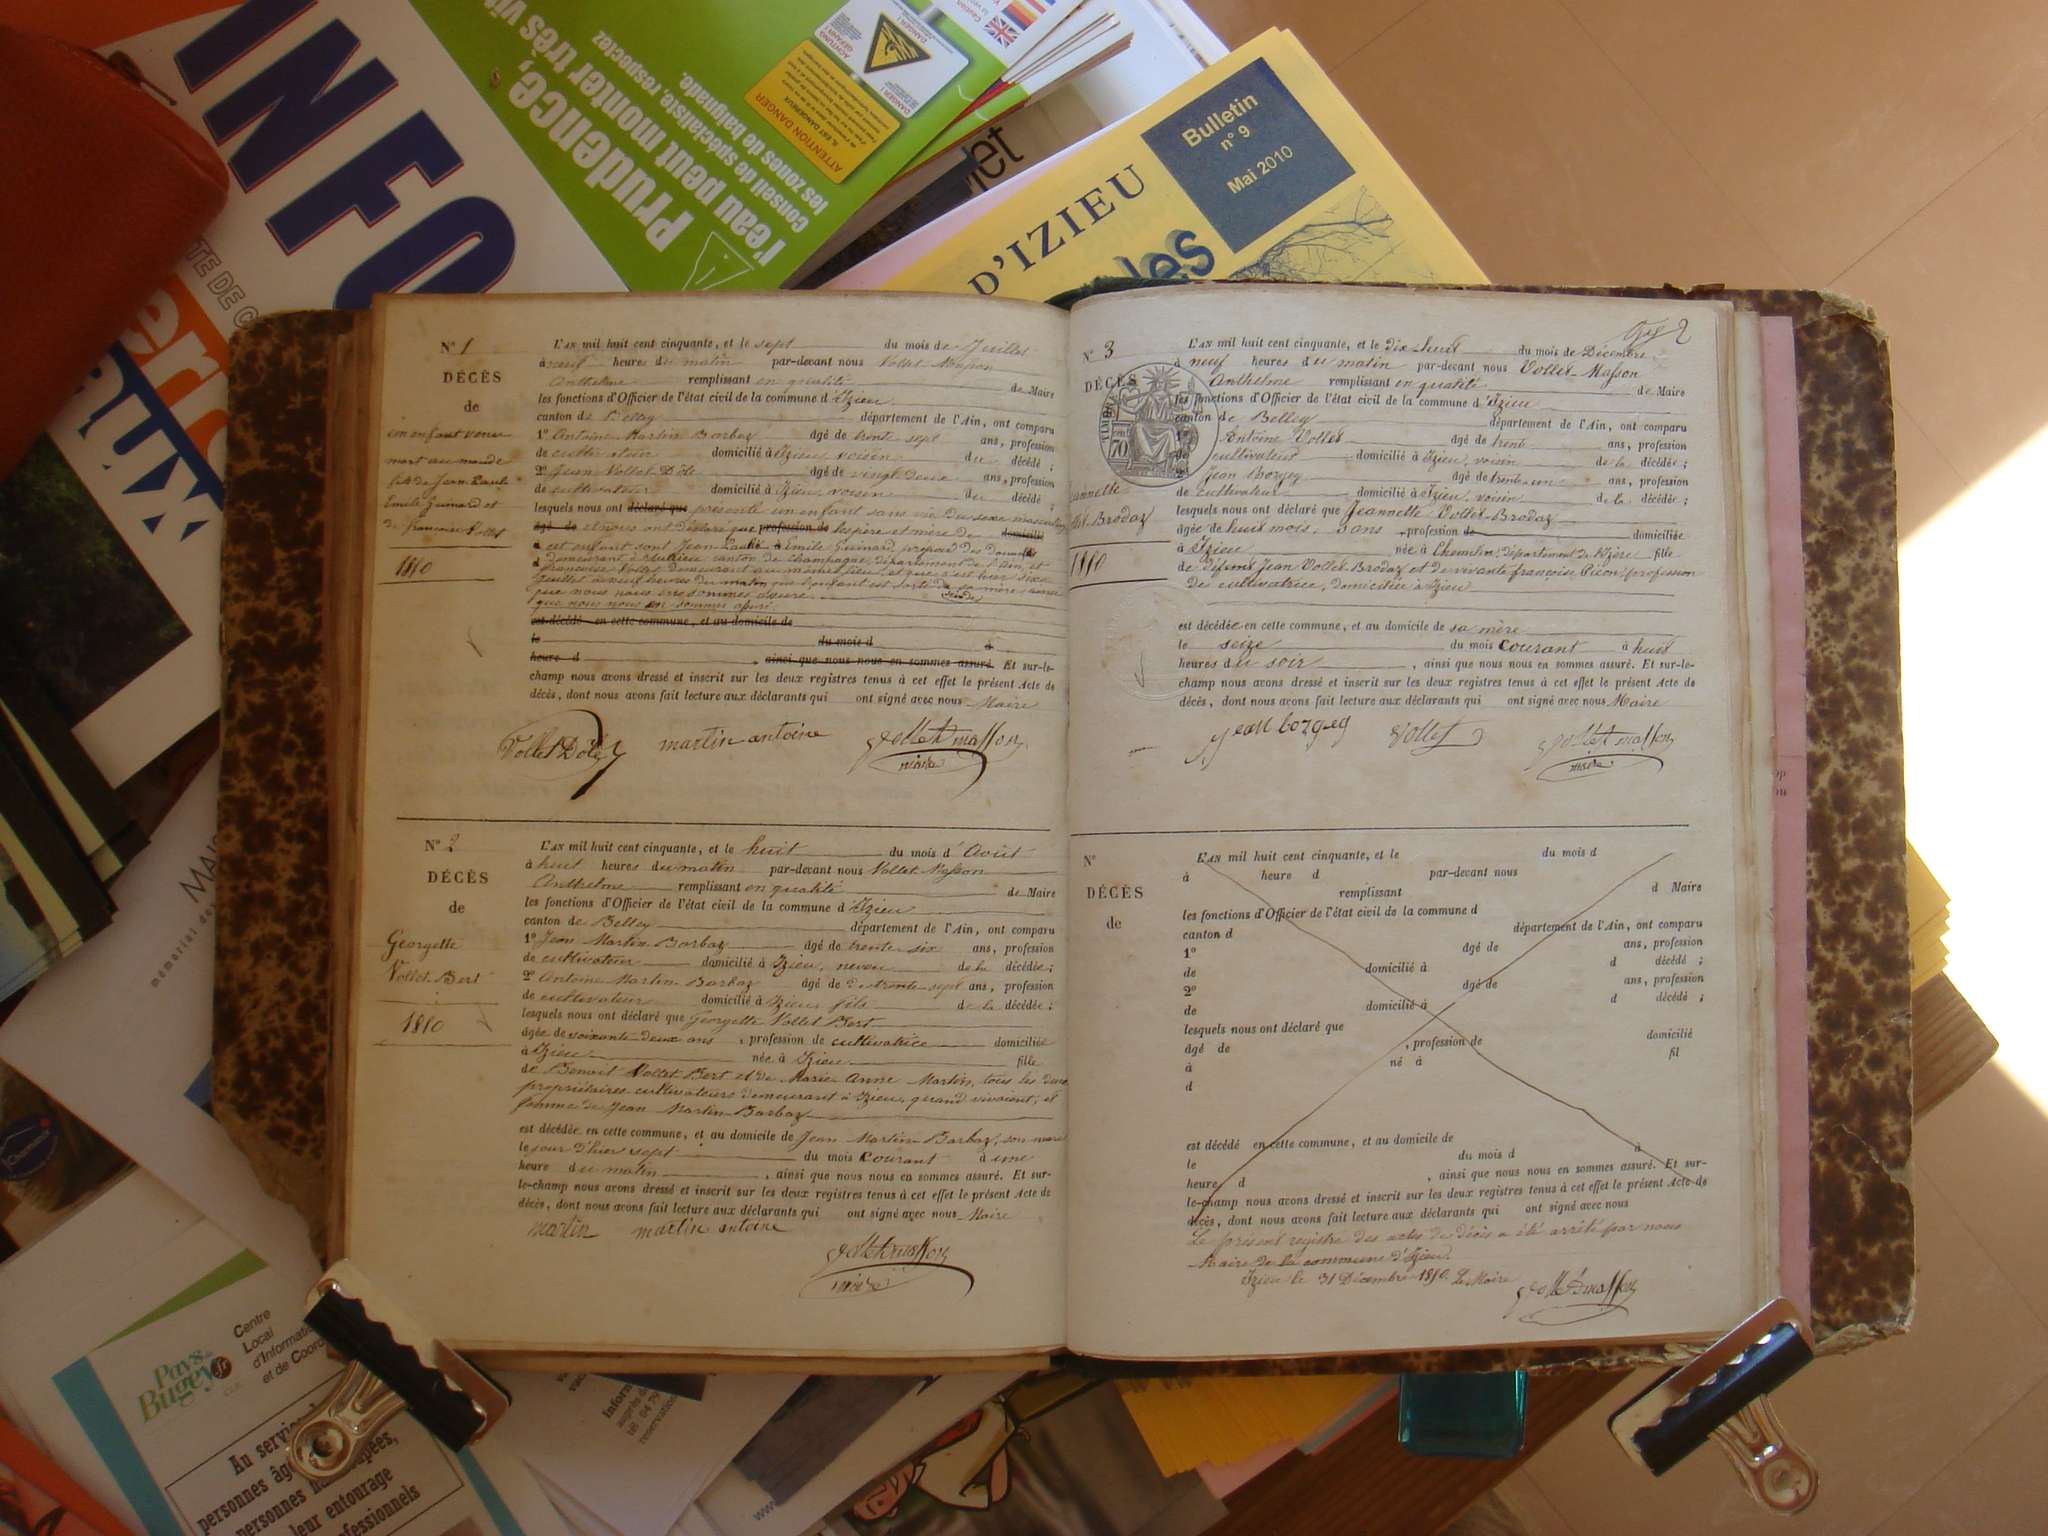 INFO
Prudence,
l'eau peut monter très vit
Conseil de spécialiste, respectez
les zones de baignade.
ATTENTION DANGER
D'IZIEU
Bulletin
n° 9
Mai 2010
les
N° 1
DÉCÈS
de
un enfant venu
mort au monde
fils de Jean-Louis
Emile Guinard et
de françoise Vollet
1850
L'AN mil huit cent cinquante, et le sept du mois de Juillet
à neuf heures du matin par-devant nous Vollet Masson
Anthelme remplissant en qualité de Maire
les fonctions d'Officier de l'état civil de la commune d'Izieu
canton de Belley département de l'Ain, ont comparu
1° Antoine Martin Barbaz âgé de trente sept ans, profession
de cultivateur domicilié à Izieu voisin du décédé ;
2° Jean Vollet-Dôle âgé de vingt deux ans, profession
de cultivateur domicilié à Izieu, voisin du décédé
lesquels nous ont déclaré que présenté un enfant sans vie du sexe masculin
âgé de et nous ont déclaré que profession de les père et mère de domicilié
à cet enfant sont Jean-Louis Emile Guinard, préposé des douanes
demeurant à canton de Champagne, département de l'Ain, et
françoise Vollet demeurant au même lieu, et que c'est hier six
juillet à neuf heures du matin que l'enfant est sorti de sa mère ainsi
que nous nous en sommes assuré
que nous nous en sommes assuré.
est décédé en cette commune, et au domicile de
le du mois d à
heure d , ainsi que nous nous en sommes assuré. Et sur-le-
champ nous avons dressé et inscrit sur les deux registres tenus à cet effet le présent Acte de
décès, dont nous avons fait lecture aux déclarants qui ont signé avec nous Maire
Vollet Dôle martin antoine vollet masson
maire
N° 2
DÉCÈS
de
Georgette
Vollet-Bert
1850
L'AN mil huit cent cinquante, et le huit du mois d'Août
à huit heures du matin par-devant nous Vollet Masson
Anthelme remplissant en qualité de Maire
les fonctions d'Officier de l'état civil de la commune d'Izieu
canton de Belley département de l'Ain, ont comparu
1° Jean Martin Barbaz âgé de trente six ans, profession
de cultivateur domicilié à Izieu, neveu de la décédée;
2° Antoine Martin Barbaz âgé de trente-sept ans, profession
de cultivateur domicilié à Izieu, fils de la décédée ;
lesquels nous ont déclaré que Georgette Vollet Bert
âgée de soixante deux ans , profession de cultivatrice domiciliée
à Izieu née à Izieu fille
de Benoit Vollet Bert et de Marie Anne Martin, tous les deux
propriétaires cultivateurs demeurant à Izieu, quand vivaient; et
femme de Jean Martin-Barbaz
est décédée en cette commune, et au domicile de Jean Martin-Barbaz, son mari
le jour d'hier sept du mois courant à une
heure du matin , ainsi que nous nous en sommes assuré. Et sur-
le-champ nous avons dressé et inscrit sur les deux registres tenus à cet effet le présent Acte de
décès, dont nous avons fait lecture aux déclarants qui ont signé avec nous Maire
martin martin antoine
vollet masson
maire
N° 3
DÉCÈS
TIMBRE
70
Jeannette
Vollet-Brodaz
1850
L'AN mil huit cent cinquante, et le dix-huit du mois de Décembre
à neuf heures du matin par-devant nous Vollet-Masson
Anthelme remplissant en qualité de Maire
les fonctions d'Officier de l'état civil de la commune d'Izieu
canton de Belley département de l'Ain, ont comparu
1° Antoine Vollet âgé de trente ans, profession
de cultivateur domicilié à Izieu, voisin de la décédée ;
2° Jean Borgey âgé de trente-un ans, profession
de cultivateur domicilié à Izieu, voisin de la décédée ;
lesquels nous ont déclaré que Jeannette Vollet-Brodaz
âgée de huit mois, ans , profession de domiciliée
à Izieu née à département de l'Isère fille
de défunt Jean Vollet-Brodaz et de vivante françoise profession
de cultivatrice, domiciliée à Izieu
est décédée en cette commune, et au domicile de sa mère
le seize du mois courant à huit
heures du soir , ainsi que nous nous en sommes assuré. Et sur-le-
champ nous avons dressé et inscrit sur les deux registres tenus à cet effet le présent Acte de
décès, dont nous avons fait lecture aux déclarants qui ont signé avec nous Maire
jean borgey Vollet vollet masson
maire
N°
DÉCÈS
de
L'AN mil huit cent cinquante, et le du mois d
à heure d par-devant nous
remplissant d Maire
les fonctions d'Officier de l'état civil de la commune d
canton d département de l'Ain, ont comparu
1° âgé de ans, profession
de domicilié à d décédé ;
2° âgé de ans, profession
de domicilié à d décédé ;
lesquels nous ont déclaré que
âgé de , profession de domicilié
à né à fil
d
est décédé en cette commune, et au domicile de
le du mois d à
heure d , ainsi que nous nous en sommes assuré. Et sur-
le-champ nous avons dressé et inscrit sur les deux registres tenus à cet effet le présent Acte de
décès, dont nous avons fait lecture aux déclarants qui ont signé avec nous
Le présent registre des actes de décès a été arrêté par nous
Maire de la commune d'Izieu.
Izieu le 31 Décembre 1850. Le Maire
vollet masson
Pays du
Bugey
CLIC
Centre
Local
d'Informati
et de Coord
Au servic
personnes âg
personnes ha apées,
leur entourage
ofessionnels